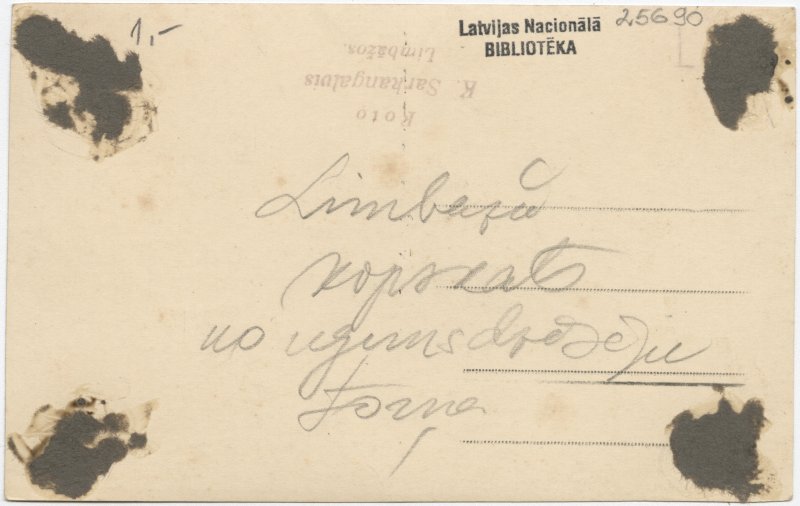 1.-
Latvijas Nacionālā 25690
BIBLIOTĒKA
Foto
K. Sarkangalvis
Limbažos.
Limbažu
kopskats
no ugunsdzēsēju
torņa